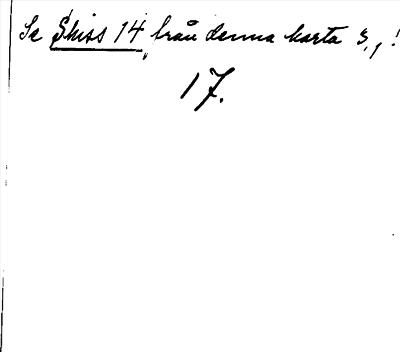 Se Skiss 14 från denna karta 3,1!
17.